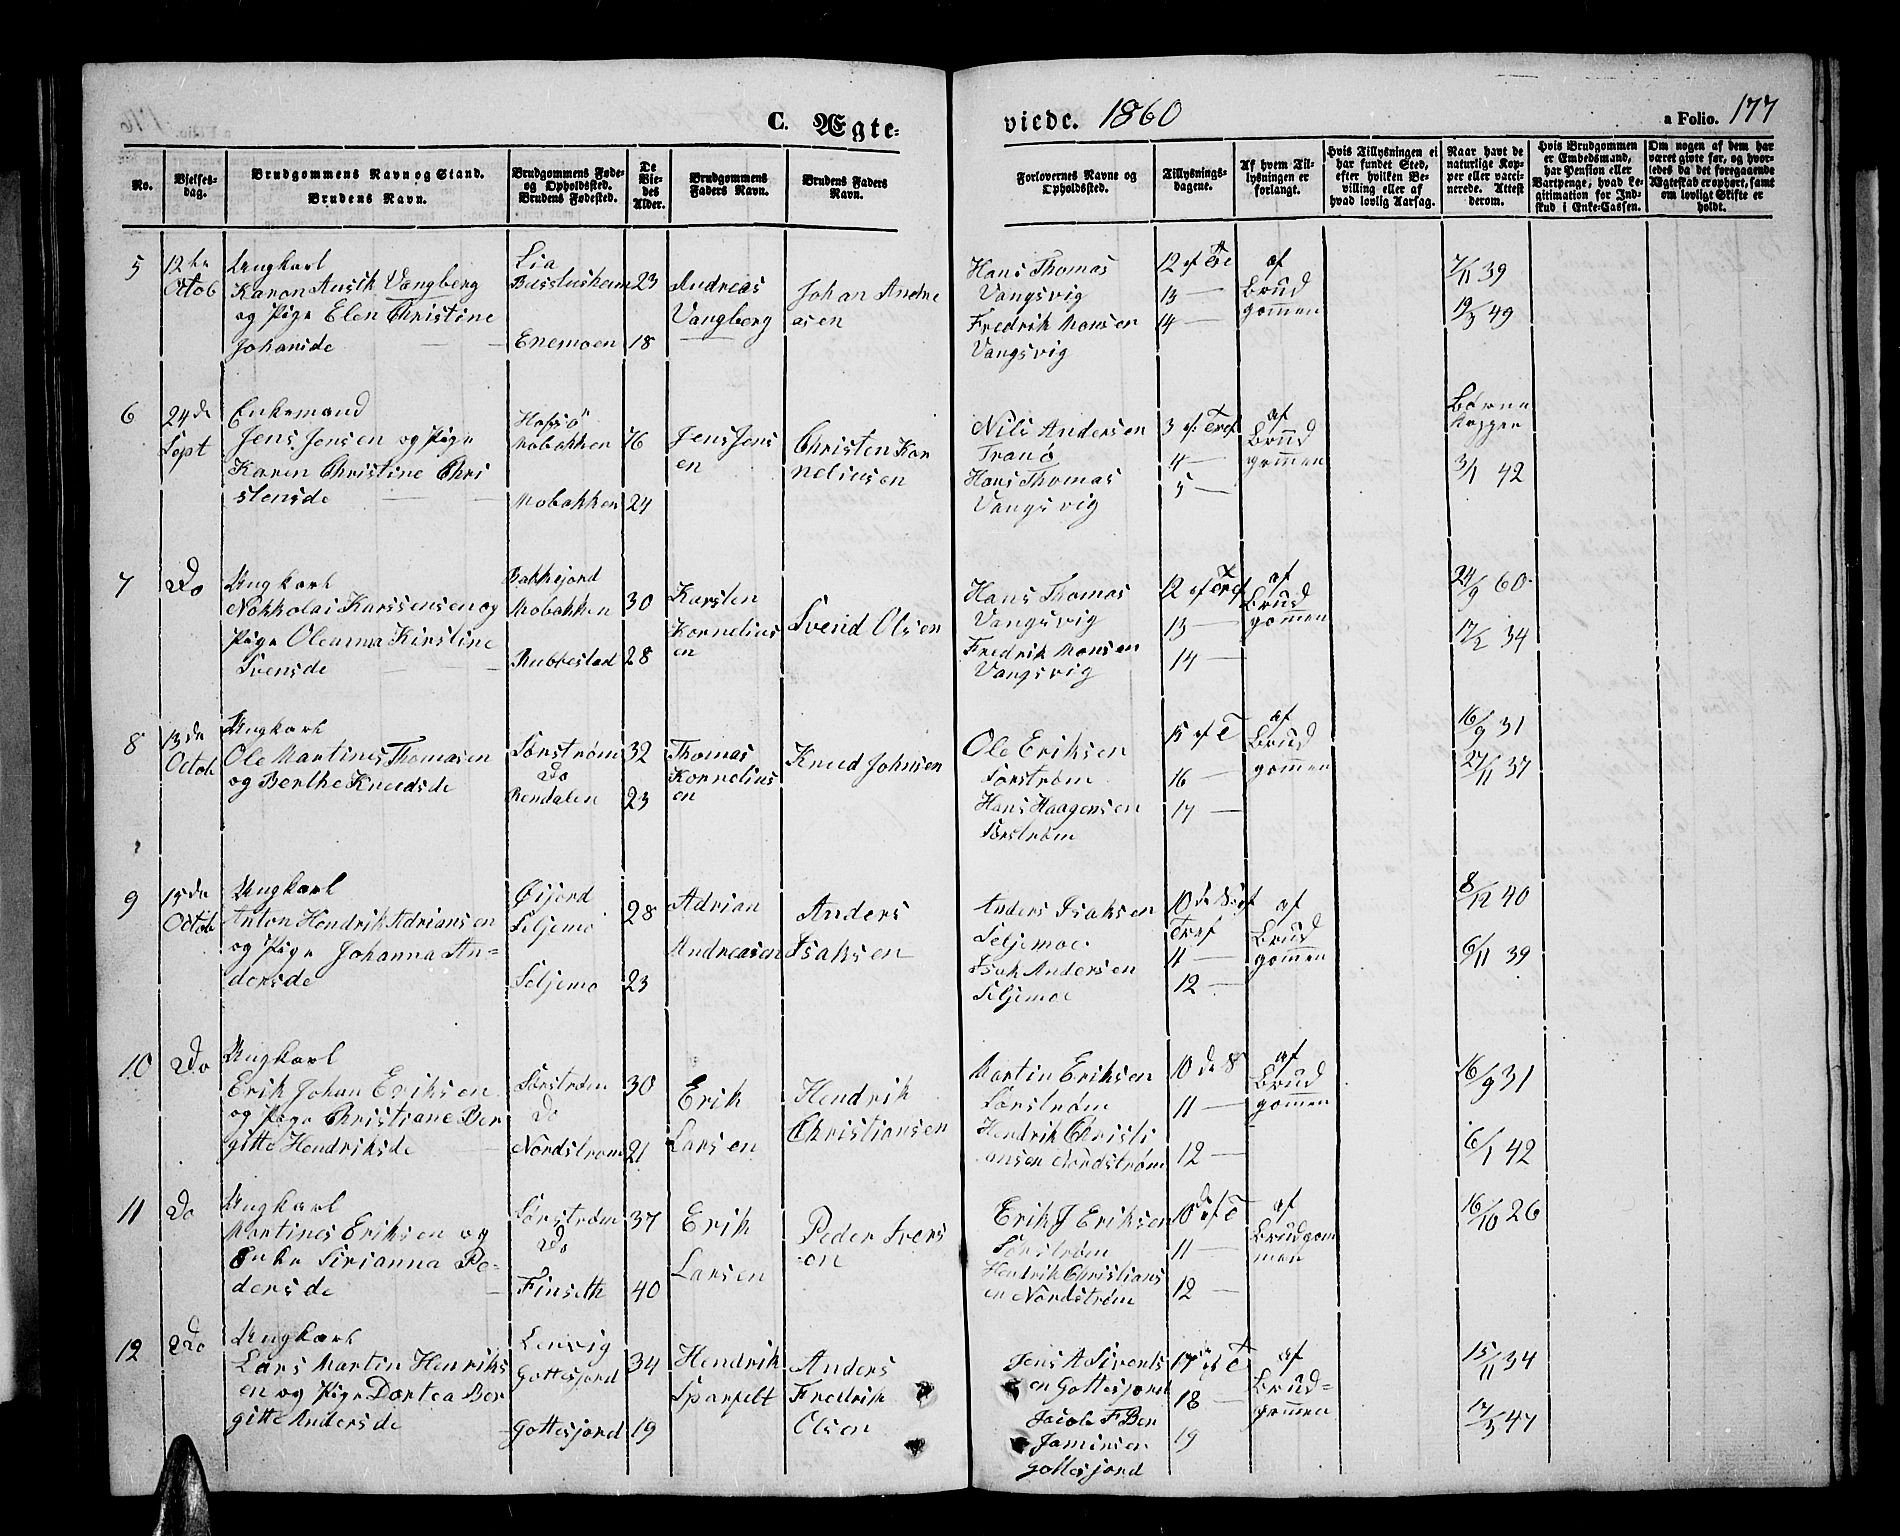 C. Ægte-
viede. 1860
a Folio. 177
No.
Vielses-
dag.
Brudgommens Navn og Stand.
Brudens Navn.
Brudgommens Føde-
og Opholdssted.
Brudens Fødested.
De
Vie-
des
Alder.
Brudgommens
Faders Navn.
Brudens Faders
Navn.
Forlovernes Navne og
Opholdssted.
Tillysnings-
dagene.
Af hvem Til-
lysningen er
forlangt.
Hvis Tillysningen ei
har fundet Sted,
efter hvilken Be-
villing eller af
hvad lovlig Aarsag.
Naar havt de
naturlige Kop-
per eller vacci-
nerede. Attest
derom.
Hvis Brudgommen
er Embedsmand,
har Pension eller
Vartpenge, hvad Le-
gitimation for Ind-
skud i Enke-Cassen.
Om nogen af dem har
været givte før, og hvor-
ledes da det foregaaende
Ægteskab erophørt, samt
om lovligt Skifte er
holdt.
5
12te
Octob
Ungkarl
Karon Austh Vangberg
og Pige Elen Christine
Johansde
Lia
23
Enemoen 18
Andreas
Vangberg
Johan Andre
asen
Hans Thomas
Vangsvig
Fredrik Monsen
Vangsvig
12 ef Tre
13 —
14 —
af
Brud
gommen
7/11 39
19/3 49
6
24de
Sept
Enkemand
Jens Jensen og Pige
Karen Christine Chri
stensde
Mobakken 76
Mobakken 24
Jens Jens
en
Christen Kor
neliusen
Nils Andersen
Tranø
Hans Thomas
Vangsvig
3 ef. Tref
4 —
5 —
af
Brud
gommen
Børne
kopper
3/1 42
7
Do
Ungkarl
Nokkolai Karssensen og
Pige Oleanna Kirstine
Svensde
Bakkejord
Mobakken 30
Rubbestad 28
Karsten
Kornelius
en
Svend Olsen
Hans Thomas
Vangsvig
Fredrik Monsen
Vangsvig
12 ef Tref
13 —
14 —
af
Brud
gommen
24/9 60
17/2 34
8
13de
Octob
Ungkarl
Ole Martines Thomasen
og Berthe Knudsde
Sørstrøm 32
Do
Rendalen 23
Thomas
Kornelius
en
Knud Johnsen
Ole Eriksen
Sørstrøm
Hans Haagensen
Sørstrøm
15 ef T
16 —
17 —
af
Brud
gommen
16/9 31
27/11 37
9
15de
Octob
Ungkarl
Anton Hendrik Adriansen
og Pige Johanna An=
dersde
Øijord
Seljemo 28
Seljemo 23
Adrian
Andreasen
Anders
Isaksen
Anders Isaksen
Seljemoe
Isak Andersen
Seljemoe
10 de S. ef
Tref
11 —
12 —
af
Brud
gommen
8/12 40
6/11 39
10
Do
Ungkarl
Erik Johan Eriksen
og Pige Christiane Ber
gitte Hendriksde
Sørstrøm 30
Do
Nordstrøm 21
Erik
Larsen
Hendrik
Christiansen
Martin Eriksen
Sørstrøm
Hendrik Christi
ansen Nordstrøm
10 de S
11 —
12 —
af
Brud
gommen
16/9 31
6/1 42
11
Do
Ungkarl
Martines Eriksen og
Enke Sirianna Pe-
dersde
Sørstrøm 37
Do
Finseth 40
Erik
Larsen
Peder Ivers
en
Erik J Eriksen
Sørstrøm
Hendrik Christians
en Nordstrøm
10 de ef T
11 —
12 —
af
Brudgom
men
16/10 26
12
Do
Ungkarl
Lars Martin Henriks
en og Pige Dortea Ber
gitte Andersde
Lenvig
Gottesjord 34
Gottesjord 19
Hendrik
Sparfelt
Anders
Fredrik
Olsen
Jens A Siverts
en Gottesjord
Jacob F Ben
jaminsen
Gottesjord
17 ef T
18 —
19
af
Brud=
gommen
15/11 34
17/3 47